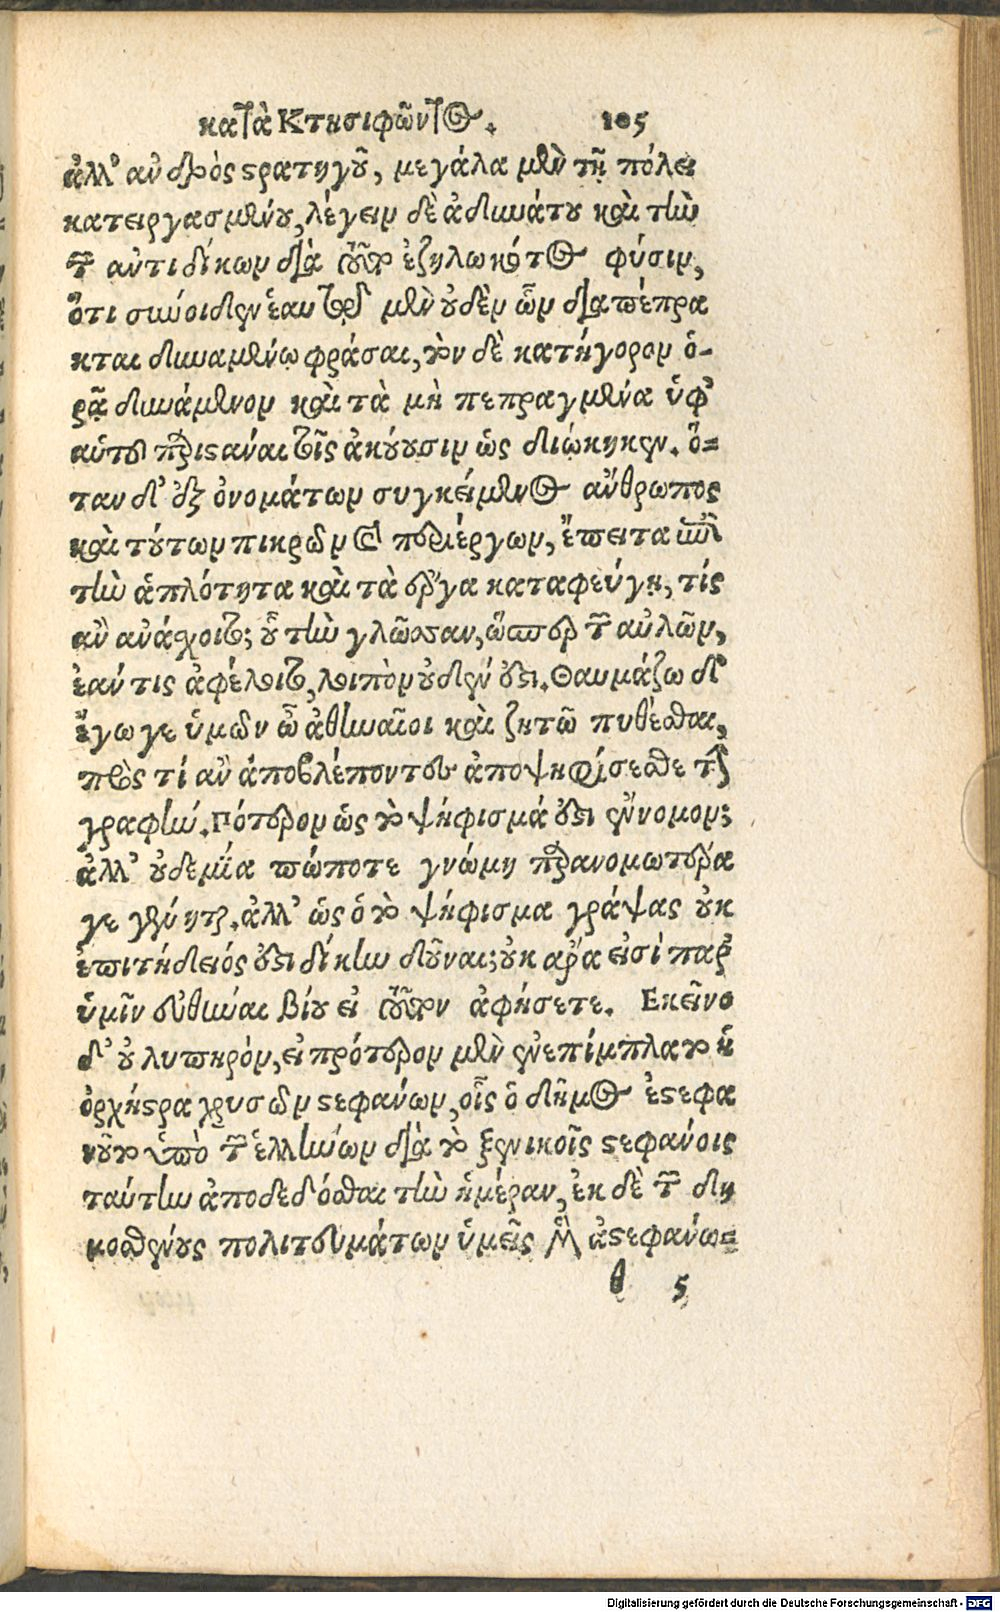 κατὰ Κτησιφῶντος. 105
ἀλλ' ἀνδρὸς στρατηγοῦ, μεγάλα μὲν τῇ πόλει
κατειργασμένου, λέγειν δὲ ἀδυνάτου καὶ τὴν
τῶν ἀντιδίκων διὰ τοῦτο ἐζηλωκότος φύσιν,
ὅτι σύνοιδεν ἑαυτῷ μὲν οὐδὲν ὧν διαπέπρα
κται δυναμένῳ φράσαι, τὸν δὲ κατήγορον ὁ-
ρᾷ δυνάμενον καὶ τὰ μὴ πεπραγμένα ὑφ'
αὑτοῦ παριστάναι τοῖς ἀκούουσιν ὡς διῴκηκεν. ὅ-
ταν δ' ἐξ ὀνομάτων συγκείμενος ἄνθρωπος
καὶ τούτων πικρῶν καὶ περιέργων, ἔπειτα ἐπὶ
τὴν ἁπλότητα καὶ τὰ ἔργα καταφεύγῃ, τίς
ἂν ἀνάσχοιτο; οὗ τὴν γλῶσσαν, ὥσπερ τῶν αὐλῶν,
ἐάν τις ἀφέλοιτο, λοιπὸν οὐδέν ἐστι. Θαυμάζω δ'
ἔγωγε ὑμῶν ὦ ἀθηναῖοι καὶ ζητῶ πυθέσθαι,
πρὸς τί ἂν ἀποβλέποντες ἀποψηφίσεσθε τὴν
γραφήν. Πότερον ὡς τὸ ψήφισμά ἐστι ἔννομον;
ἀλλ' οὐδεμία πώποτε γνώμη παρανομωτέρα
γεγένηται. ἀλλ' ὡς ὁ τὸ ψήφισμα γράψας οὐκ
ἐπιτήδειός ἐστι δίκην δοῦναι; οὐκ ἄρα εἰσὶ παρ'
ὑμῖν εὐθῦναι βίου εἰ τοῦτον ἀφήσετε. Ἐκεῖνο
δ' οὐ λυπηρόν, εἰ πρότερον μὲν ἐνεπίμπλατο ἡ
ὀρχήστρα χρυσῶν στεφάνων, οἷς ὁ δῆμος ἐστεφα
νοῦτο ὑπὸ τῶν ἑλλήνων διὰ τὸ ξενικοῖς στεφάνοις
ταύτην ἀποδεδόσθαι τὴν ἡμέραν, ἐκ δὲ τῶν δη
μοσθένους πολιτευμάτων ὑμεῖς μὲν ἀστεφάνω-
θ 5
Digitalisierung gefördert durch die Deutsche Forschungsgemeinschaft - DFG